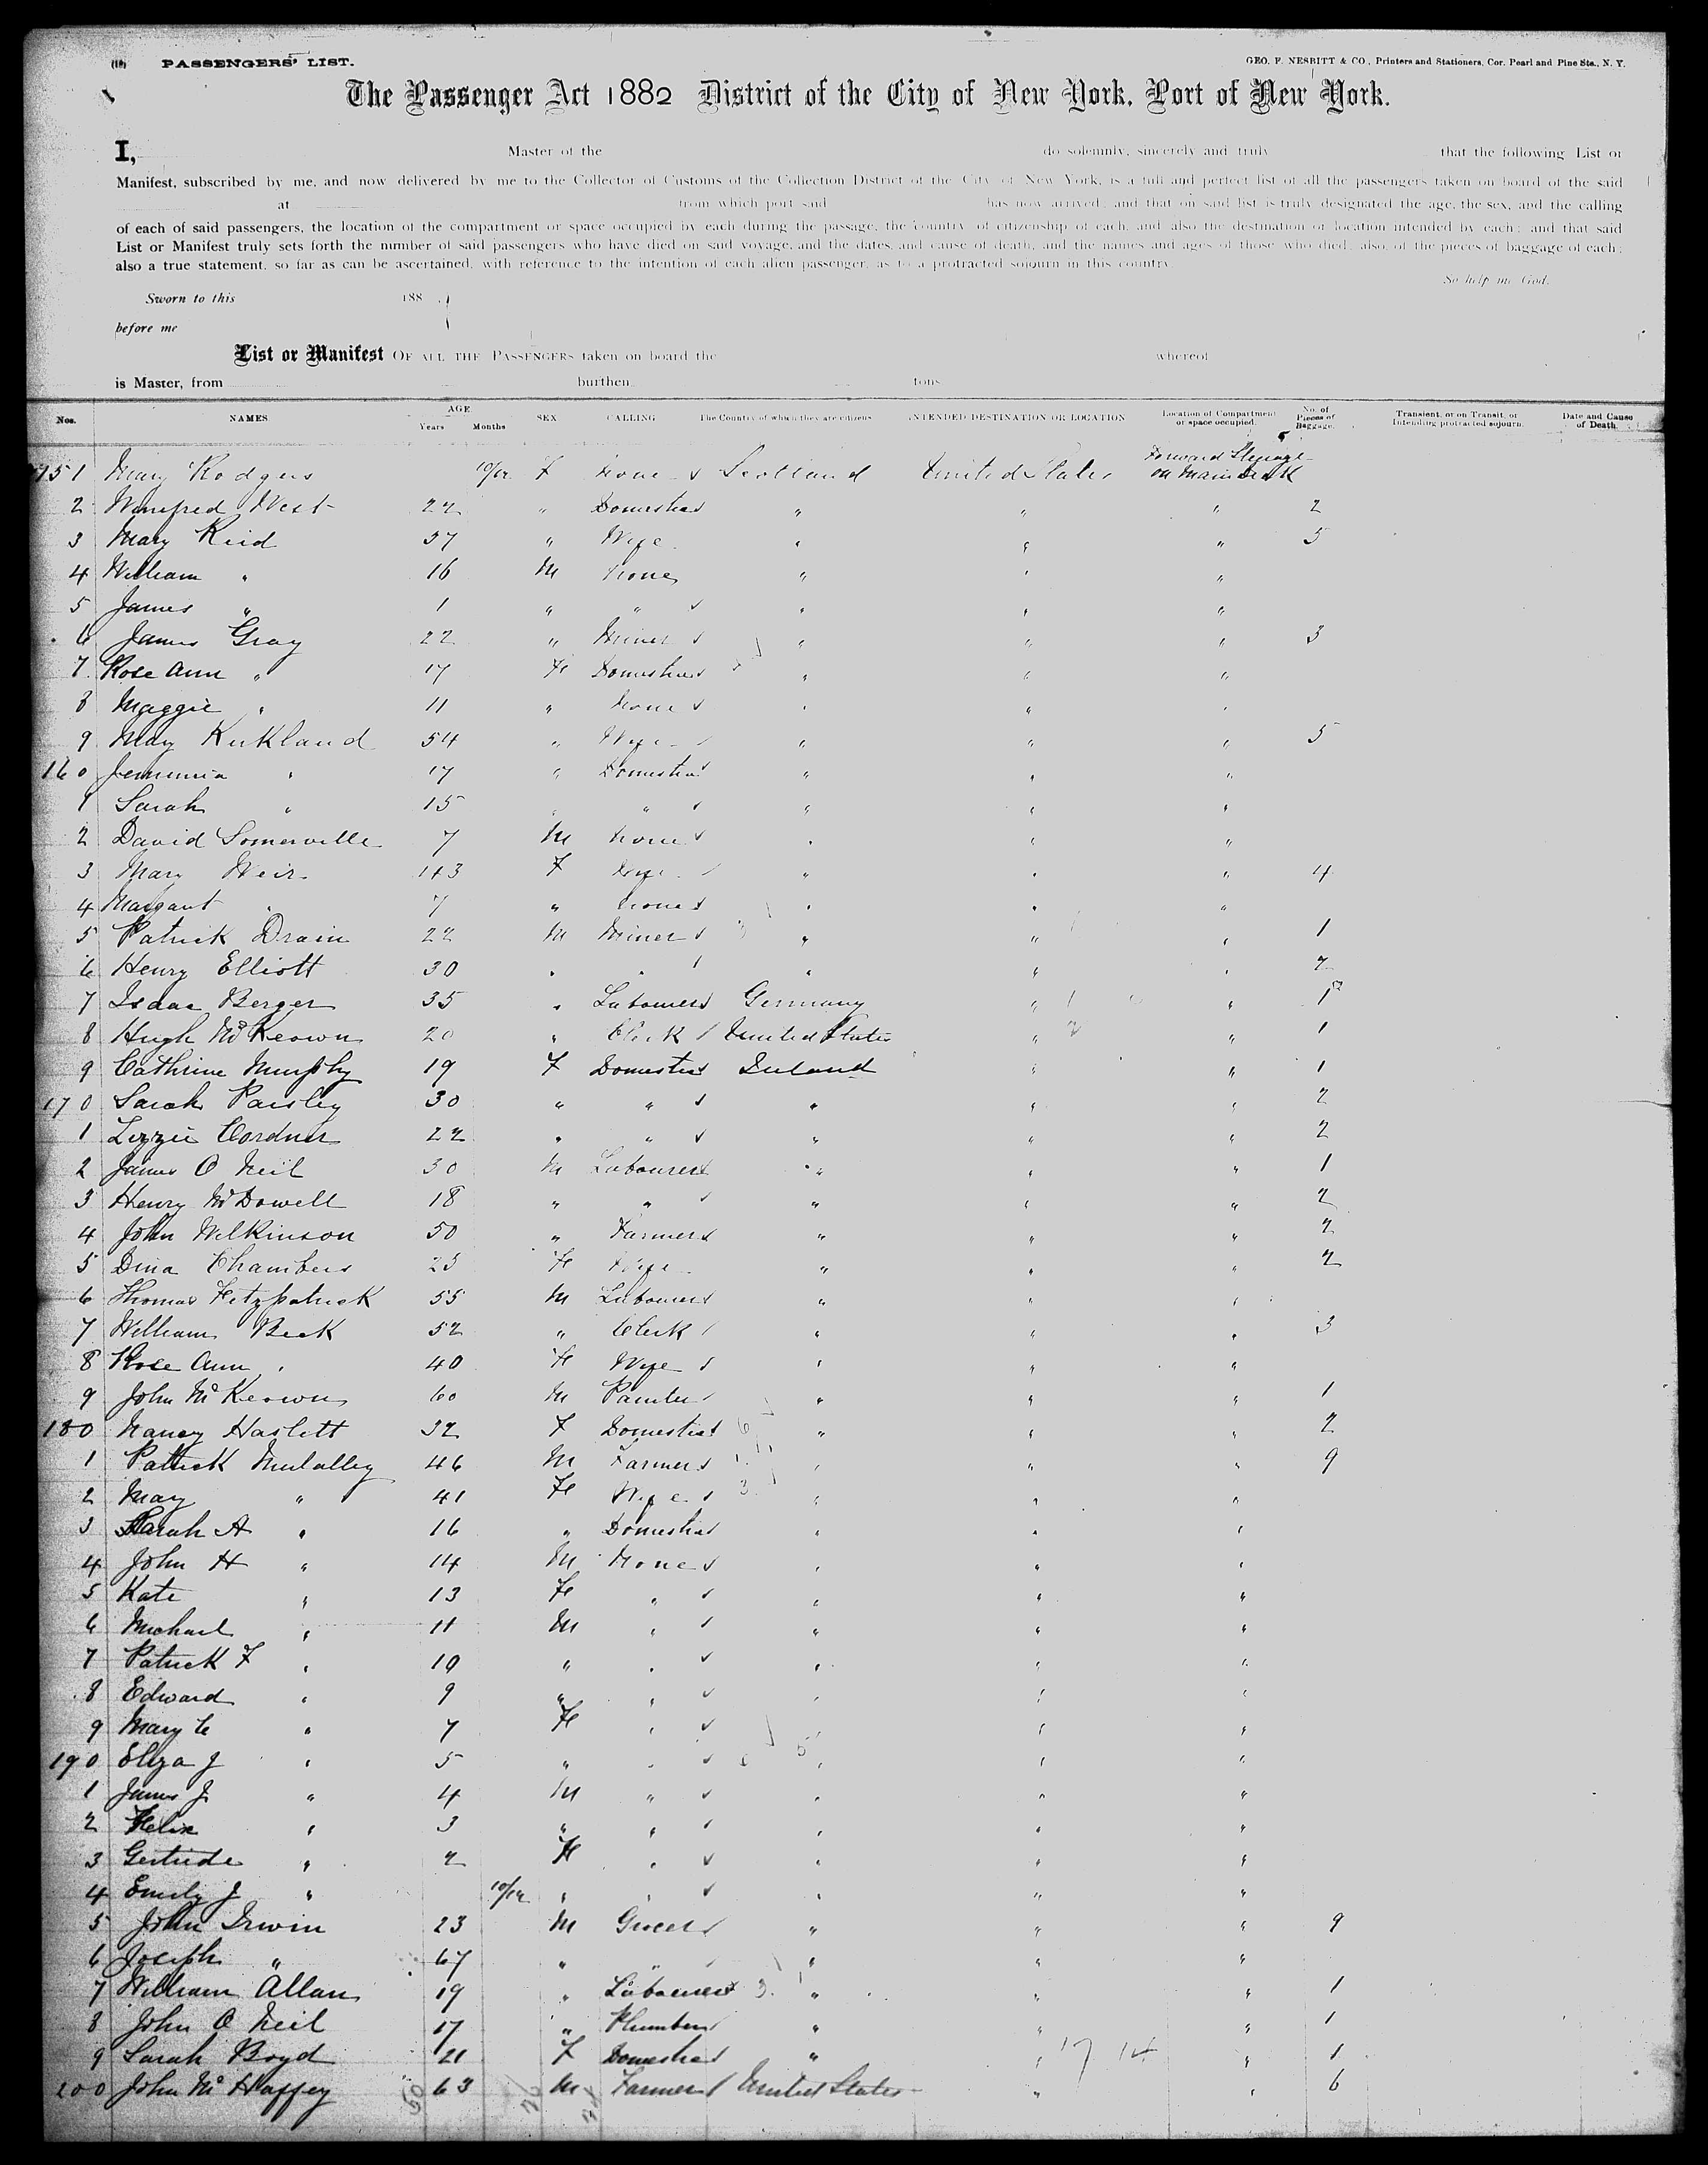 (18) PASSENGERS' LIST. GEO. F. NESBITT & CO., Printers and Stationers, Cor. Pearl and Pine Sts., N. Y.
The Passenger Act 1882 District of the City of New York, Port of New York.
I, Master of the do solemnly, sincerely and truly that the following List or
Manifest, subscribed by me, and now delivered by me to the Collector of Customs of the Collection District of the City of New York, is a full and perfect list of all the passengers taken on board of the said
at from which port said has now arrived; and that on said list is truly designated the age, the sex, and the calling
of each of said passengers, the location of the compartment or space occupied by each during the passage, the country of citizenship of each, and also the destination or location intended by each; and that said
List or Manifest truly sets forth the number of said passengers who have died on said voyage, and the dates, and cause of death, and the names and ages of those who died; also, of the pieces of baggage of each;
also a true statement, so far as can be ascertained, with reference to the intention of each alien passenger, as to a protracted sojourn in this country
So help me God.
Sworn to this 188
before me
List or Manifest OF ALL THE PASSENGERS taken on board the whereof
is Master, from burthen tons
Nos. NAMES AGE Years Months SEX CALLING The Country of which they are citizens INTENDED DESTINATION OR LOCATION Location of Compartment or space occupied. No. of Pieces of Baggage. Transient, or on Transit, or Intending protracted sojourn. Date and Cause of Death.
151 Mary Rodgers 10/12 F None Scotland United States Forward Steerage on Main Deck
2 Winefred West 22 " Domestic " " " 2
3 Mary Reid 37 " Wife " " " 5
4 William " 16 M None " " "
5 James " 1 " " " " "
6 James Gray 22 " Miner " " " 3
7 Rose Ann " 17 Fe Domestic " " "
8 Maggie " 11 " None " " "
9 May Kirkland 54 " Wife " " " 5
160 Jemimia " 17 " Domestic " " "
1 Sarah " 15 " " " " "
2 David Somerville 7 M None " " "
3 Mary Weir 43 F Wife " " " 4
4 Margaret " 7 " None " " "
5 Patrick Drain 22 M Miner " " " 1
6 Henry Elliott 30 " " " " " 2
7 Isaac Berger 35 " Labourer Germany " " 1
8 Hugh McKeown 20 " Clerk United States " " 1
9 Cathrine Murphy 19 F Domestic Ireland " " 1
170 Sarah Paisley 30 " " " " " 2
1 Lizzie Cordner 22 " " " " " 2
2 James O Neil 30 M Labourer " " " 1
3 Henry McDowell 18 " " " " " 2
4 John Wilkinson 50 " Farmer " " " 2
5 Dina Chambers 25 Fe Wife " " " 2
6 Thomas Fitzpatrick 55 M Labourer " " "
7 William Beck 52 " Clerk " " " 3
8 Rose Ann " 40 Fe Wife " " "
9 John McKeown 60 M Painter " " " 1
180 Nancy Haslett 32 F Domestic " " " 2
1 Patrick Mulalley 46 M Farmer " " " 9
2 May " 41 Fe Wife " " "
3 Sarah A " 16 " Domestic " " "
4 John H " 14 M None " " "
5 Kate " 13 Fe " " " "
6 Michael " 11 M " " " "
7 Patrick F " 10 " " " " "
8 Edward " 9 " " " " "
9 Mary C " 7 Fe " " " "
190 Eliza J " 5 " " " " "
1 James J " 4 M " " " "
2 Felix " 3 " " " " "
3 Gertrude " 2 Fe " " " "
4 Emily J " 10/12 " " " " "
5 John Irwin 23 M Grocer " " " 9
6 Joseph " 67 " " " " "
7 William Allan 19 " Labourer " " " 1
8 John O Neil 17 " Plumber " " " 1
9 Sarah Boyd 21 F Domestic " " " 1
200 John McHaffey 63 M Farmer United States " " 6